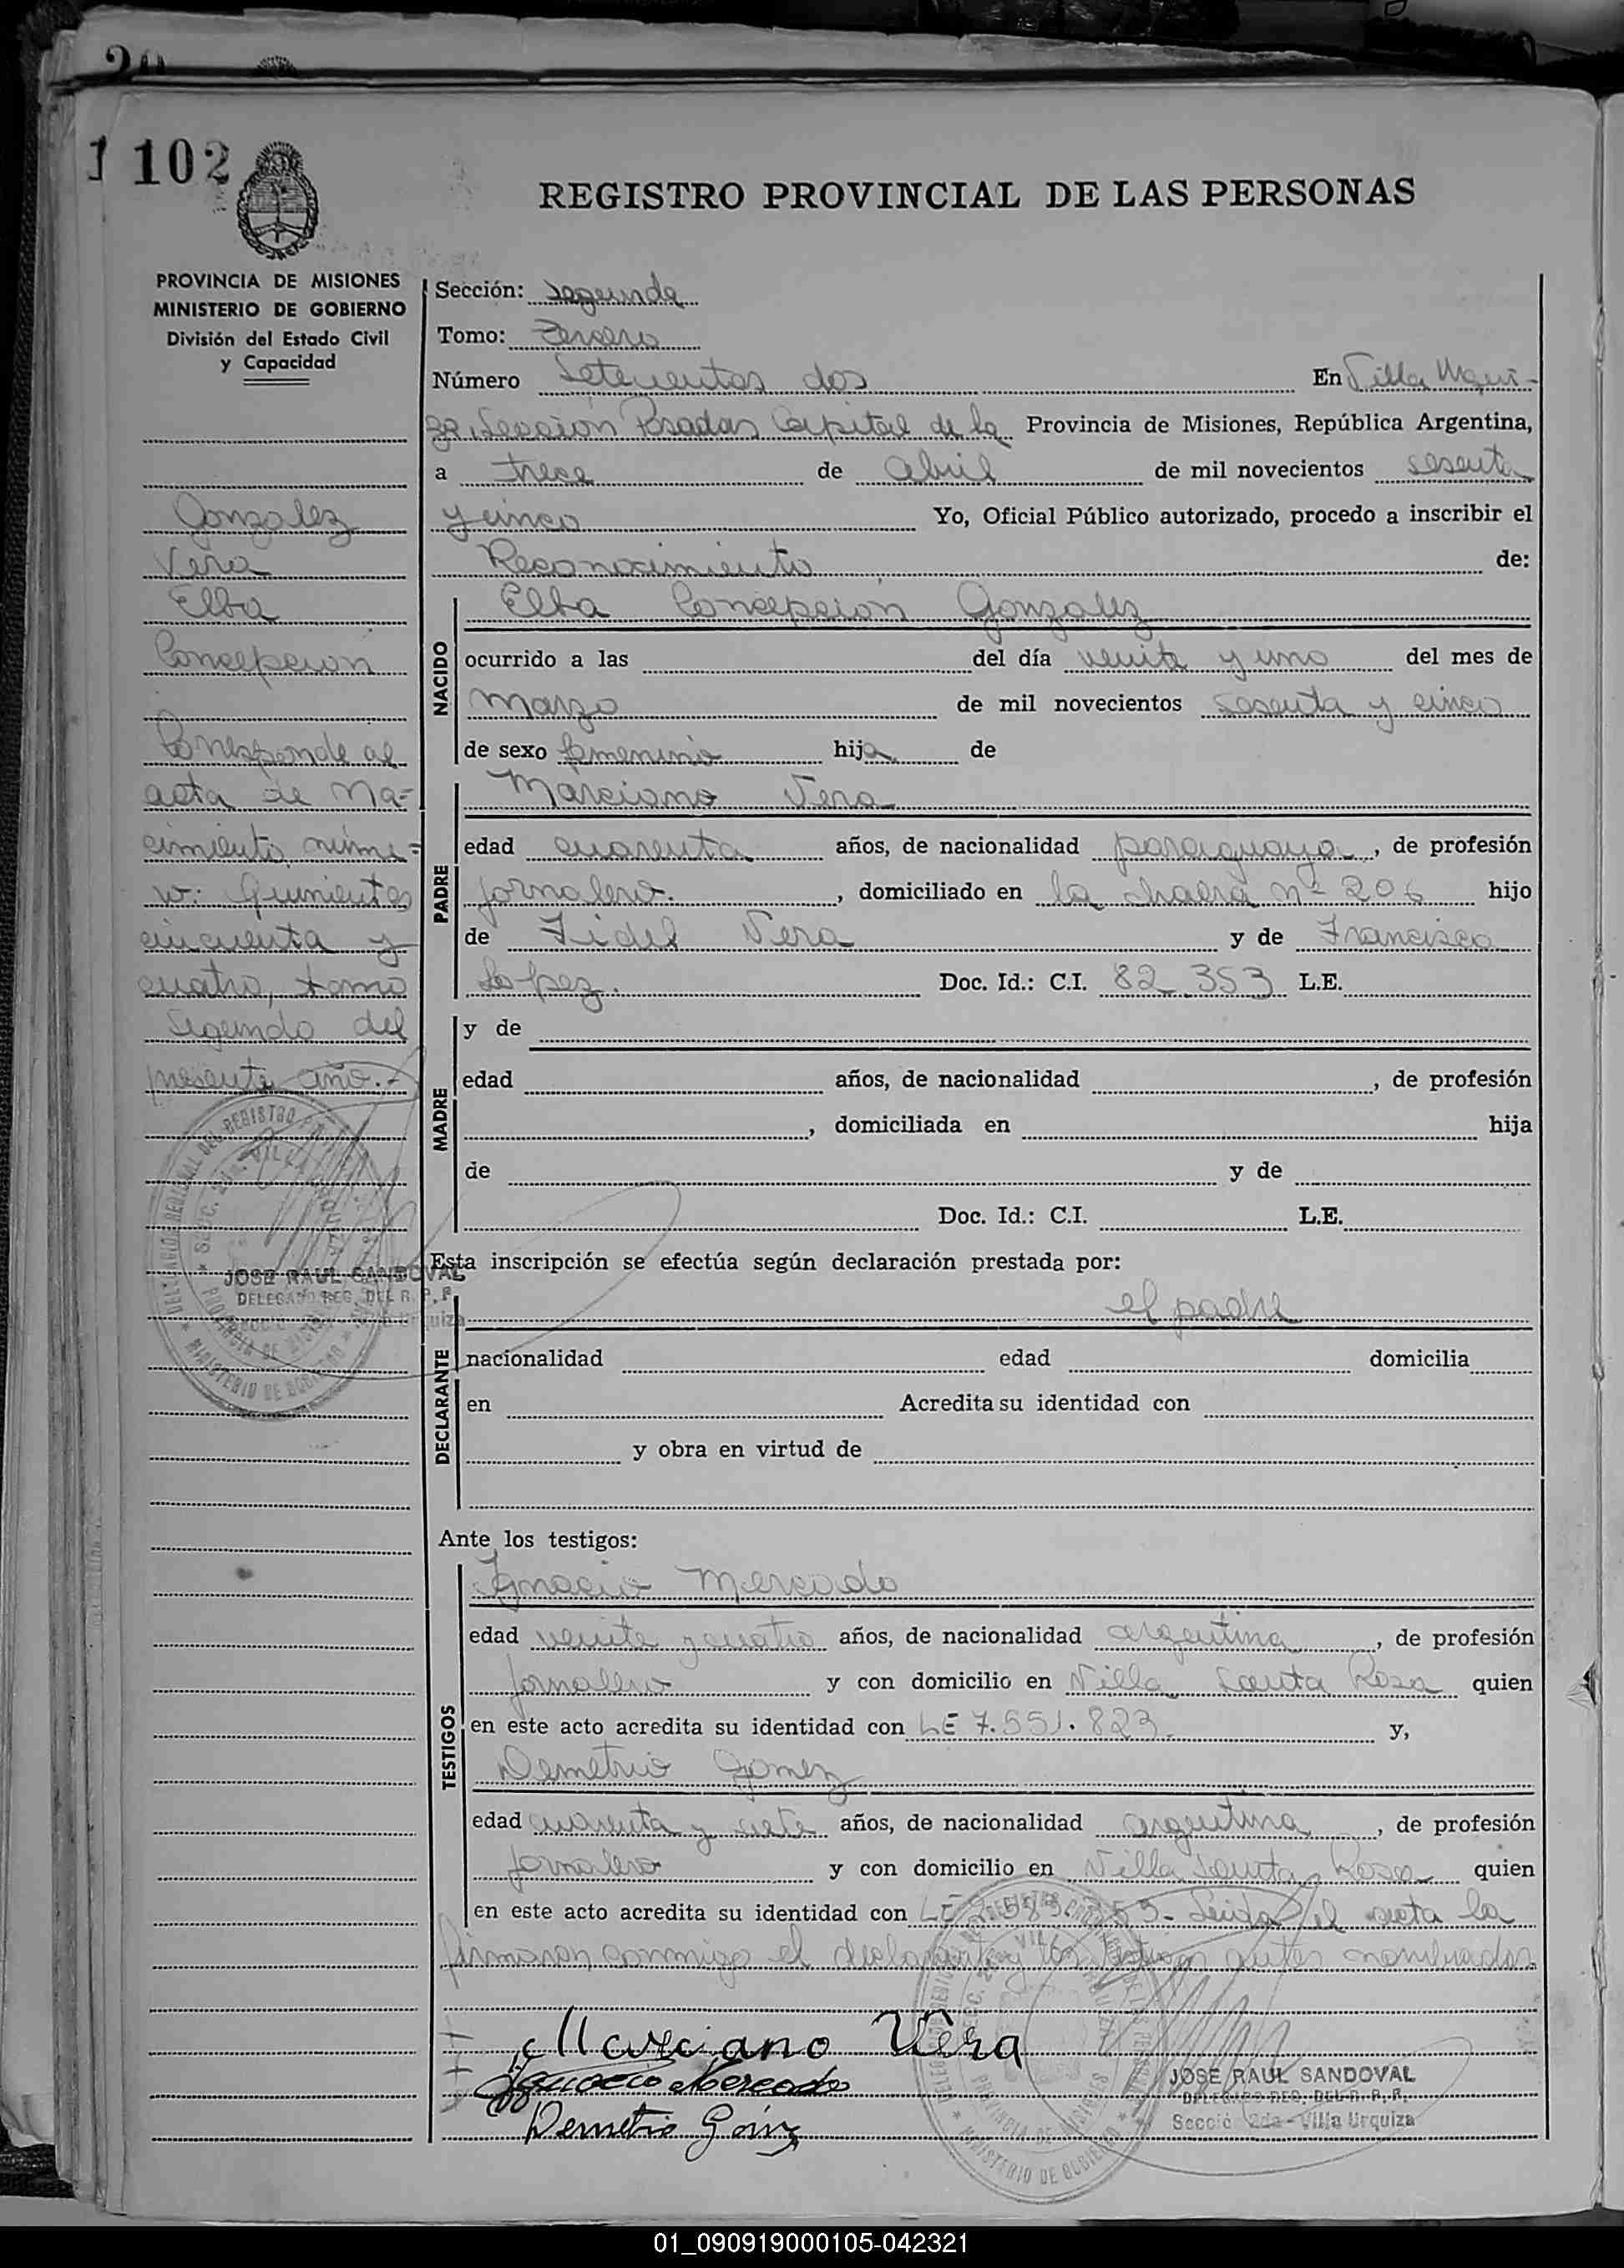 1 102
REGISTRO PROVINCIAL DE LAS PERSONAS
PROVINCIA DE MISIONES
MINISTERIO DE GOBIERNO
División del Estado Civil
y Capacidad
Gonzalez
Vera
Elba
Concepcion
Corresponde al
acta de Na-
cimiento núme-
ro: Quinientos
cincuenta y
cuatro, tomo
Segundo del
presente año.-
JOSE RAUL SANDOVAL
DELEGADO REG. DEL R. P. P.
Sección: segunda
Tomo: Tercero
Número Setecientos dos En Villa Urqui-
za, Sección Posadas Capital de la Provincia de Misiones, República Argentina,
a trece de abril de mil novecientos sesenta
y cinco Yo, Oficial Público autorizado, procedo a inscribir el
Reconocimiento de:
NACIDO
Elba Concepción Gonzalez
ocurrido a las del día veinte y uno del mes de
Marzo de mil novecientos sesenta y cinco
de sexo femenino hija de
PADRE
Marciano Vera
edad cuarenta años, de nacionalidad paraguaya, de profesión
jornalero. , domiciliado en la chacra nº 206 hijo
de Fidel Vera y de Francisca
Lopez. Doc. Id.: C.I. 82.353 L.E.
MADRE
y de
edad años, de nacionalidad , de profesión
, domiciliada en hija
de y de
Doc. Id.: C.I. L.E.
Esta inscripción se efectúa según declaración prestada por:
DECLARANTE
el padre
nacionalidad edad domicilia
en Acredita su identidad con
y obra en virtud de
Ante los testigos:
TESTIGOS
Ignacio Mercado
edad veinte y cuatro años, de nacionalidad argentina, de profesión
jornalero y con domicilio en Villa Santa Rosa quien
en este acto acredita su identidad con LE 7.551.823. y,
Demetrio Gomez
edad cuarenta y siete años, de nacionalidad argentina, de profesión
jornalero y con domicilio en Villa Santa Rosa quien
en este acto acredita su identidad con LE Leida el acta la
firmaron conmigo el declarante y los testigos antes nombrados.
Marciano Vera
Ignacio Mercado
Demetrio Gomz
JOSE RAUL SANDOVAL
DELEGADO REG. DEL R. P. P.
Secció 2da - Villa Urquiza
01_090919000105-042321